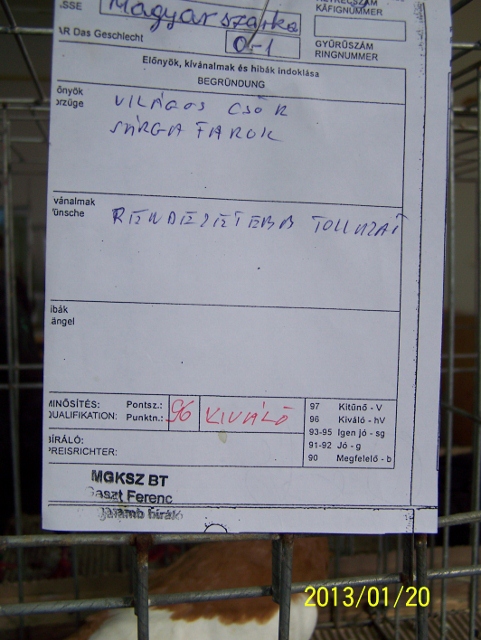 .SSE Magyar szarka
KÁFIGNUMMER
ÁR Das Geschlecht 0-1
GYŰRŰSZÁM
RINGNUMMER
Előnyök, kívánalmak és hibák indoklása
BEGRÜNDUNG
őnyök
orzüge
VILÁGOS CSŐR
SÁRGA FAROK
vánalmak
ünsche
RENDEZETEBB TOLLAZAT
ibák
ängel
MINŐSÍTÉS: Pontsz.:
QUALIFIKATION: Punktn.:
96 KIVÁLÓ
97 Kitűnő - V
96 Kiváló - hV
93-95 Igen jó - sg
91-92 Jó - g
90 Megfelelő - b
BÍRÁLÓ:
PREISRICHTER:
MGKSZ BT
Gaszt Ferenc
galamb bíráló
2013/01/20